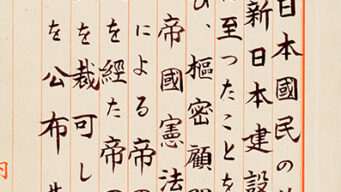 日本國民の
新日本建設
至つたことを
樞密顧
帝國憲法
による帝
を経た帝
を裁可し
を公布